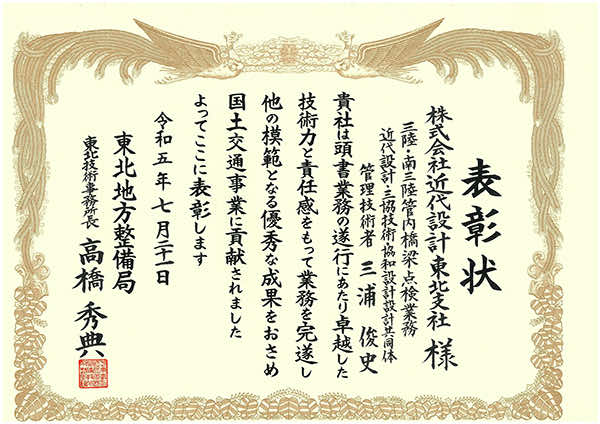 表彰状
株式会社近代設計東北支社 様
三陸・南三陸管内橋梁点検業務
近代設計・三協技術・協和設計設計共同体
管理技術者 三浦 俊史
貴社は頭書業務の遂行にあたり卓越した
技術力と責任感をもって業務を完遂し
他の模範となる優秀な成果をおさめ
国土交通事業に貢献されました
よってここに表彰します
令和五年七月二十一日
東北地方整備局
東北技術事務所長 高橋 秀典